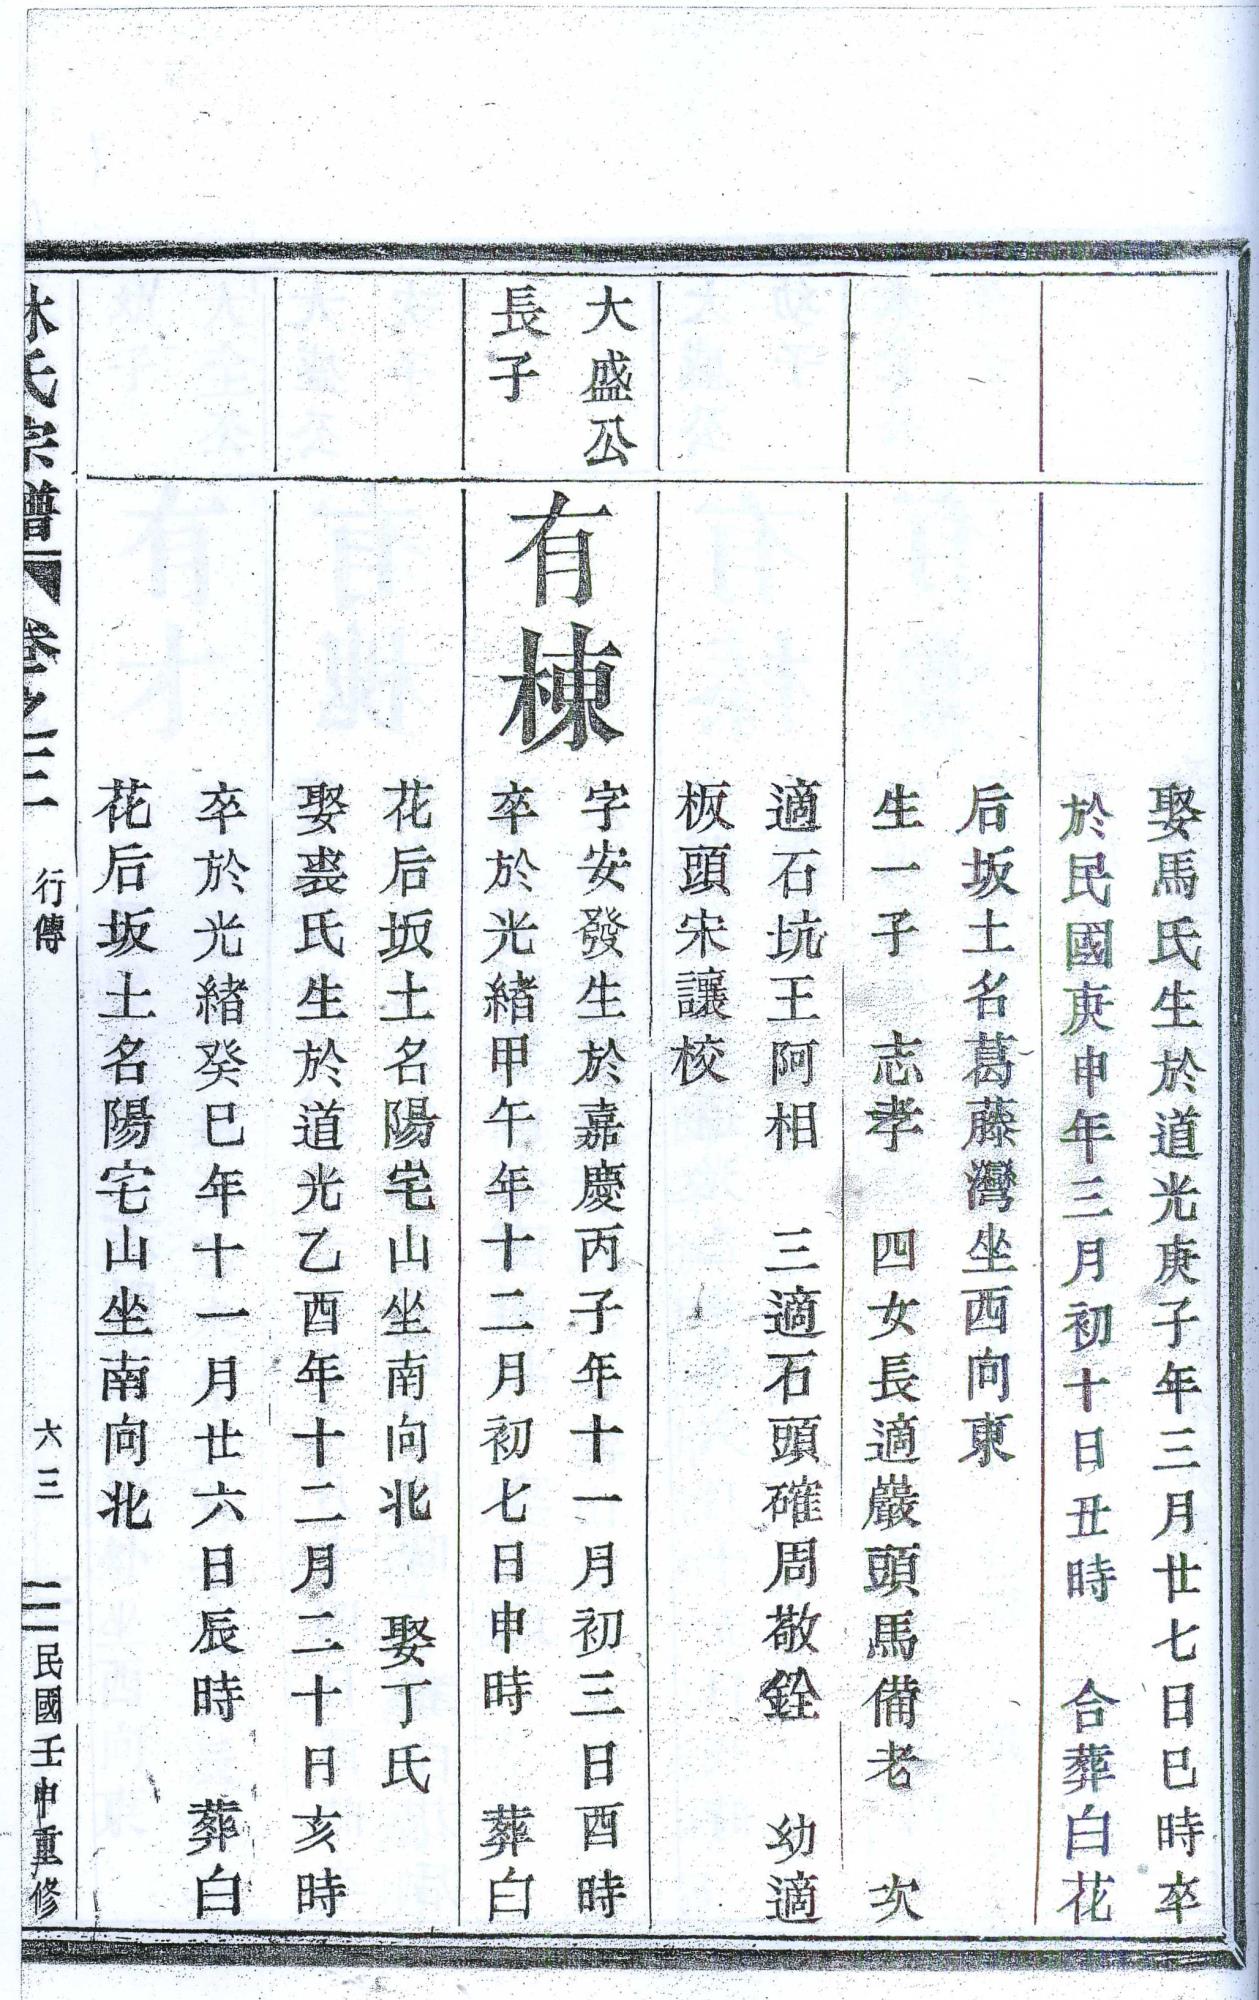 娶馬氏生於道光庚子年三月廿七日巳時卒
於民國庚申年三月初十日丑時　合葬白花
后坂土名葛藤灣坐西向東
生一子　志孝　四女長適嚴頭馬備老　次
適石坑王阿相　三適石頭確周敬銓　幼適
板頭宋讓校
大盛公
長子
有棟
字安發生於嘉慶丙子年十一月初三日酉時
卒於光緒甲午年十二月初七日申時　葬白
花后坂土名陽宅山坐南向北　娶丁氏
娶裘氏生於道光乙酉年十二月二十日亥時
卒於光緒癸巳年十一月廿六日辰時　葬白
花后坂土名陽宅山坐南向北
林氏宗譜　卷之三　行傳　六三　民國壬申重修